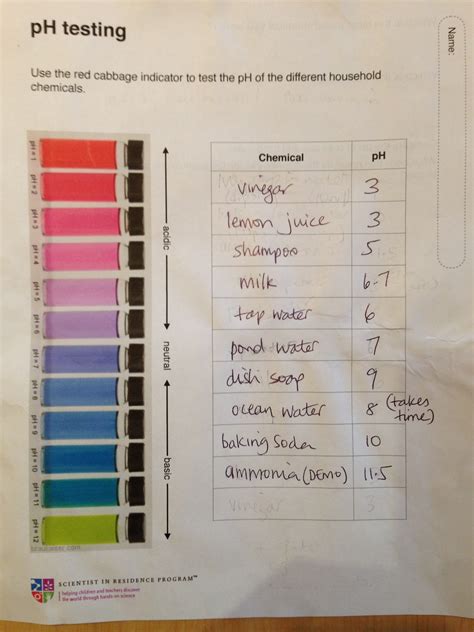 pH testing
Name:
Use the red cabbage indicator to test the pH of the different household
chemicals.
pH = 1
pH = 2
pH = 3
pH = 4
pH = 5
pH = 6
pH = 7
pH = 8
pH = 9
pH = 10
pH = 11
pH = 12
acidic
neutral
basic
Chemical pH
vinegar 3
lemon juice 3
shampoo 5
milk 6-7
tap water 6
pond water 7
dish soap 9
ocean water 8 (takes time)
baking soda 10
ammonia (DEMO) 11.5
vinegar 3
SCIENTIST IN RESIDENCE PROGRAM™
helping children and teachers discover
the world through hands-on science